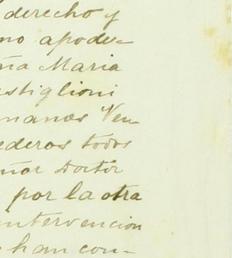 derecho y
no apode-
ña Maria
astiglioni
manas Ven-
ederos todos
ñor Doctor
por la otra
intervencion
e han com-